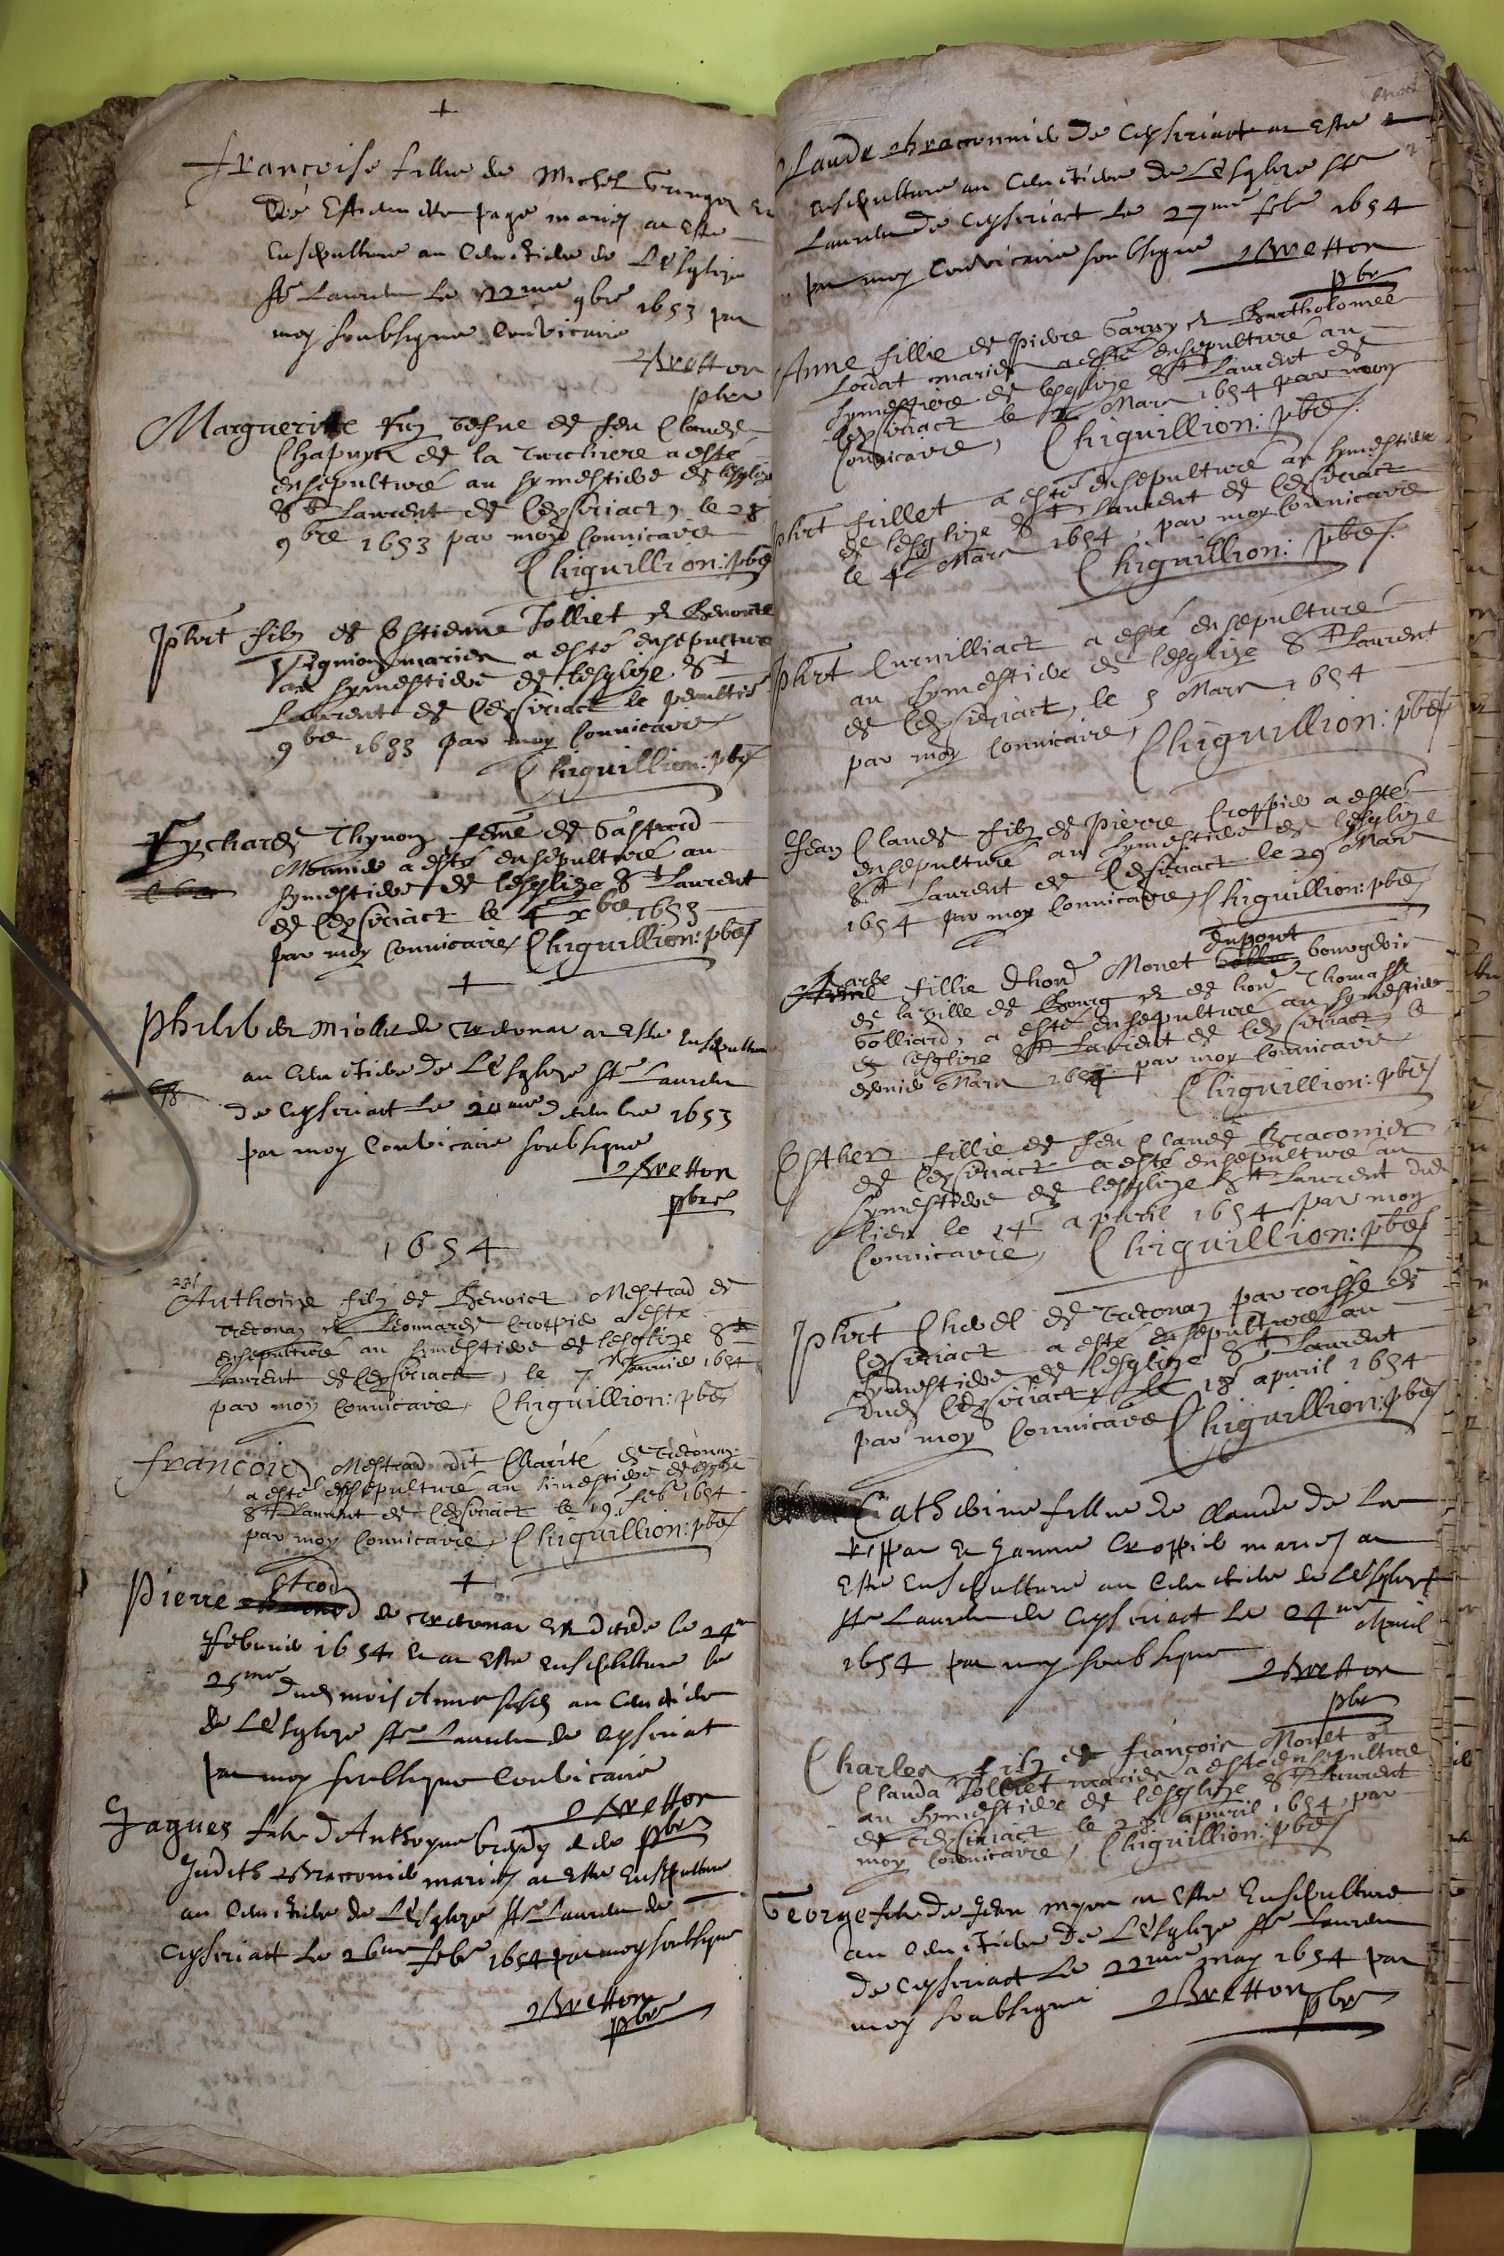 +
Françoise fillie de Michel
De Estiennette page mariez at este
Ensepulture au Cimetiere de L'Esglize
St Laurent Le 22me 9bre 1653 par
moy soubsigne Convicaire
Bretton
pbre
Marguerite vefve de feu Claude
Chapuys de la Turchiere a esté
ensepulturé au symestiere de lesglize
St Laurent de Ceyseriact, le 28
9bre 1653 par moy Convicaire
Chiguillion: pbre
Phbrt filz de Estienne Jolliet & Benoiste
mariez a esté ensepulturé
au symestiere de lesglize St
Laurent de Ceyseriact le penultie
9bre 1653 par moy Convicaire
Chiguillion: pbre
Rycharde Thynon feme de Gaspard
Meunier a esté ensepulturé au
symestiere de lesglize St Laurent
de Ceyseriact le 4 xbre 1653
par moy Convicaire, Chiguillion: pbre
+
Philibert de at este Ensepulture
au Cimetiere de L'Esglize St Laurent
de Ceyseriat Le decembre 1653
par moy Convicaire soubsigne
Bretton
pbre
1654
Anthoine filz de Benoict Mestrad de
Treconaz & Leonnarde Croppier a esté
ensepulturé au symestiere de lesglize St
Laurent de Ceyseriact, le 7 Janvier 1654
par moy Convicaire, Chiguillion: pbre
françois Mestrad dit Charité de Treconaz
a esté ensepulturé au simestiere de lesglize
St Laurent de Ceyseriact le 19 febr 1654
par moy Convicaire, Chiguillion: pbre
+
Pierre de decede le 24e
Febvrier 1654 Et at Este Ensepulture le
25me dud mois au Cimetiere
de L'Esglize St Laurent de Ceyseriat
par moy soubsigne Convicaire
Bretton
pbre
Jaques filz d'Anthoyne & de
Judith Braconnier mariez at este Ensepulture
au Cimetiere de L'Esglize St Laurent de
Ceyseriact Le 26me febr 1654 par moy soubsigne
Bretton
pbre
Claude Braconnier de Ceyseriact at Este
ensepulture au Cimetiere de L'Esglize St
Laurent de Ceyseriact Le 27me febr 1654
par moy Convicaire soubsigne Bretton
pbre
Anne fillie de Pierre & Bartholomee
Loudat mariez a esté ensepulturé au
symestiere de lesglize St Laurent de
Ceyseriact le 2 Mars 1654 par moy
Convicaire, Chiguillion: pbre
Phbrt frillet a esté ensepulturé au symestiere
de lesglize St Laurent de Ceyseriact
le 4 Mars 1654, par moy Convicaire
Chiguillion: pbre
Phbrt Curnilliact a esté ensepulturé
au symestiere de lesglize St Laurent
de Ceyseriact, le 5 Mars 1654
par moy Convicaire, Chiguillion: pbre
Jean Claude filz de Pierre Croppier a esté
ensepulturé au symestiere de lesglize
St Laurent de Ceyseriact le 29 Mars
1654 par moy Convicaire, Chiguillion: pbre
dupont
fillie d'hond Monet bourgeois
de la ville de Bourg & de hond Thomasse
Golliard, a esté ensepulturé au symestiere
de lesglize St Laurent de Ceyseriact le
dernier Mars 1654 par moy Convicaire
Chiguillion: pbre
Esther fillie de feu Claude Braconier
de Ceyseriact a esté ensepulturé au
symestiere de lesglize St Laurent dud
lieu le 14 apvril 1654 par moy
Convicaire, Chiguillion: pbre
Phbrt Chevel de Treconaz parroisse de
Ceyseriact a esté ensepulturé au
symestiere de lesglize St Laurent
dud Ceyseriact, le 18 apvril 1654
par moy Convicaire Chiguillion: pbre
Catherine fillie de Claude de La
Et Janne Croppier mariez at
Este Ensepulture au Cimetiere de L'Esglize
St Laurent de Ceyseriact Le 24me Apvril
1654 par moy soubsigne Bretton
pbre
Charles filz de françois Monet &
Clauda Jolliet mariez a esté ensepulturé
au symestiere de lesglize St Laurent
de Ceyseriact le apvril 1654, par
moy Convicaire, Chiguillion: pbre
George filz de Jean at Este Ensepulture
au Cimetiere de L'Esglize St Laurent
de Ceyseriact Le 22me may 1654 par
moy soubsigne Bretton
pbre